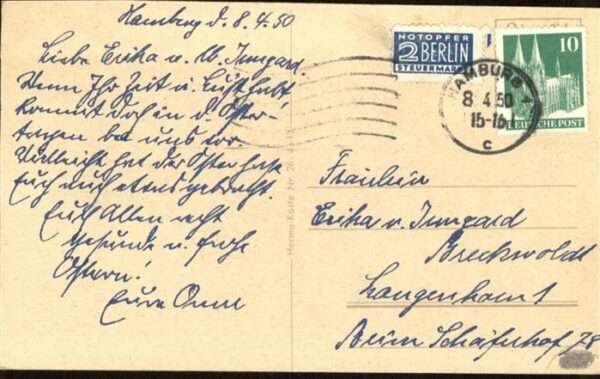 Hamburg d. 8.4.50
Liebe Erika u. lb. Irmgard.
Wenn Ihr Zeit u. Lust habt
kommt doch in d. Oster-
tagen bei uns vor.
Vielleicht hat der Osterhase
Euch auch etwas gebracht.
Euch Allen recht
gesunde u. frohe
Ostern!
Eure
NOTOPFER
2 BERLIN
STEUERMARKE
10
DEUTSCHE POST
HAMBURG
8.4.50
15-16
c
Herma Karte Nr.
Fräulein
Erika u. Irmgard
Breckwoldt
Langenhorn 1
Beim Schäferhof 78